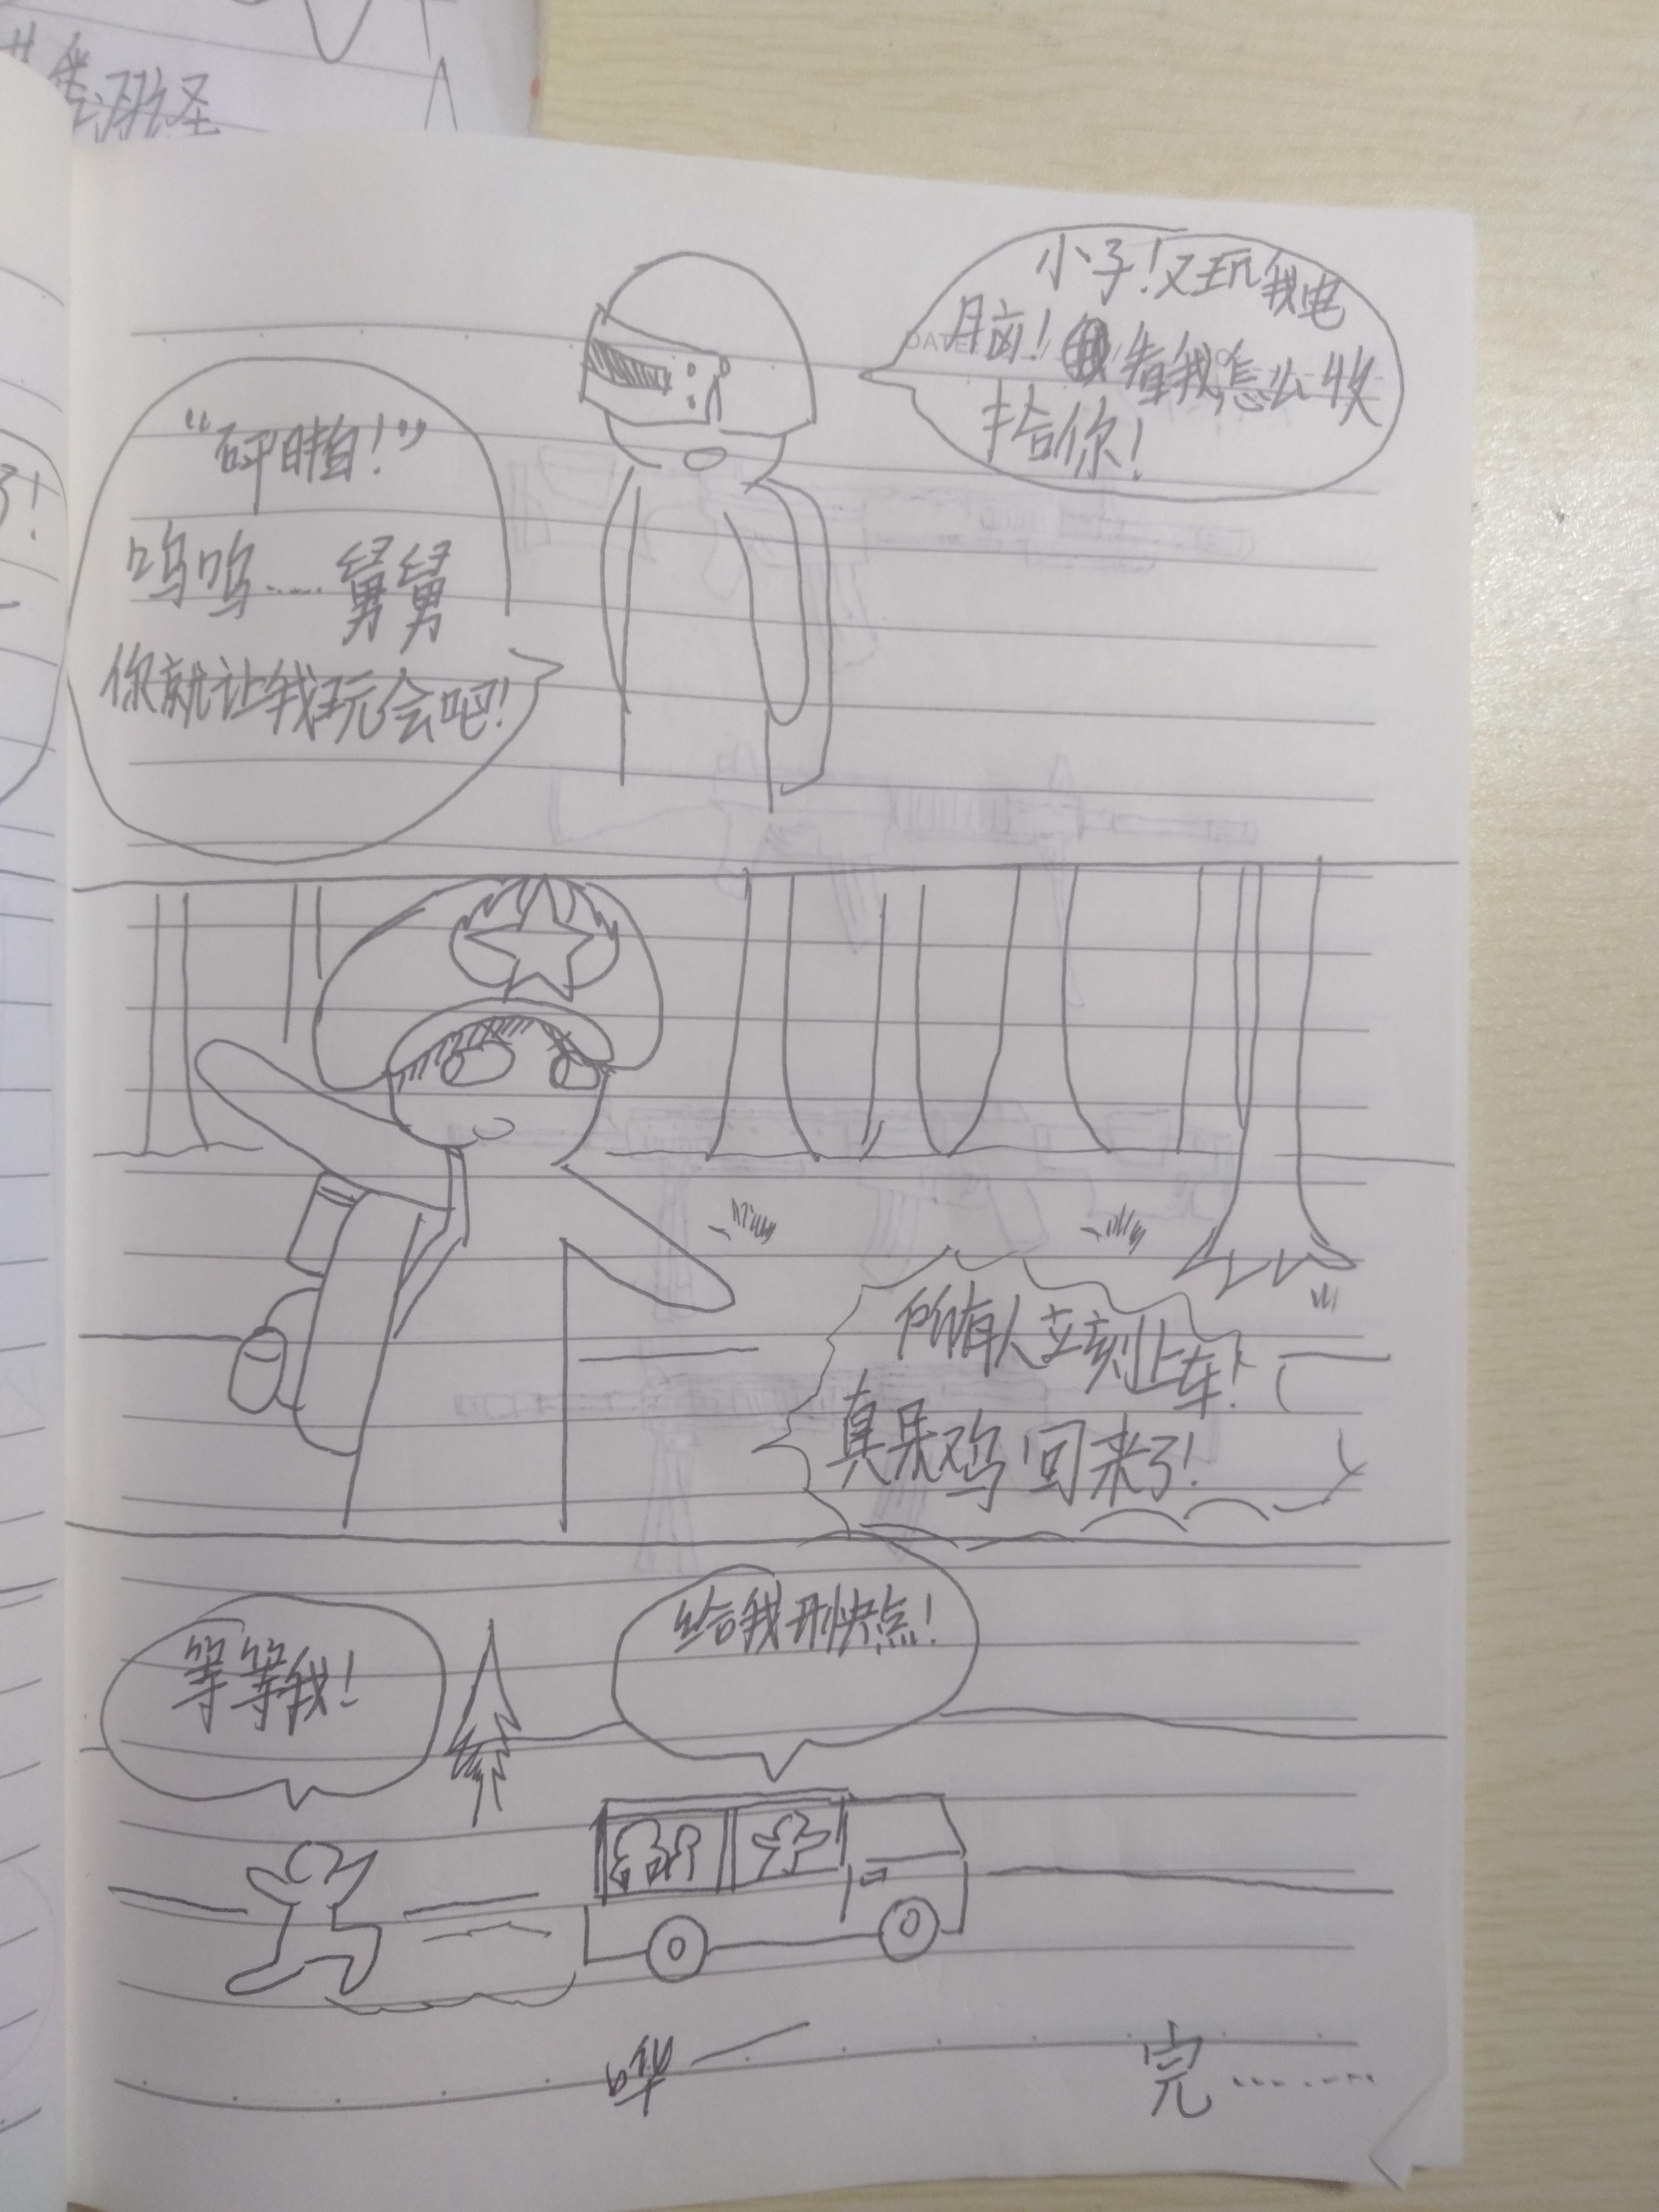 小子！又玩我电
脑！看我怎么收
拾你！
“砰啪！”
呜呜……舅舅
你就让我玩会吧！
所有人立刻上车！
真呆鸡回来了！
等等我！
给我开快点！
哗—
完……
DATE